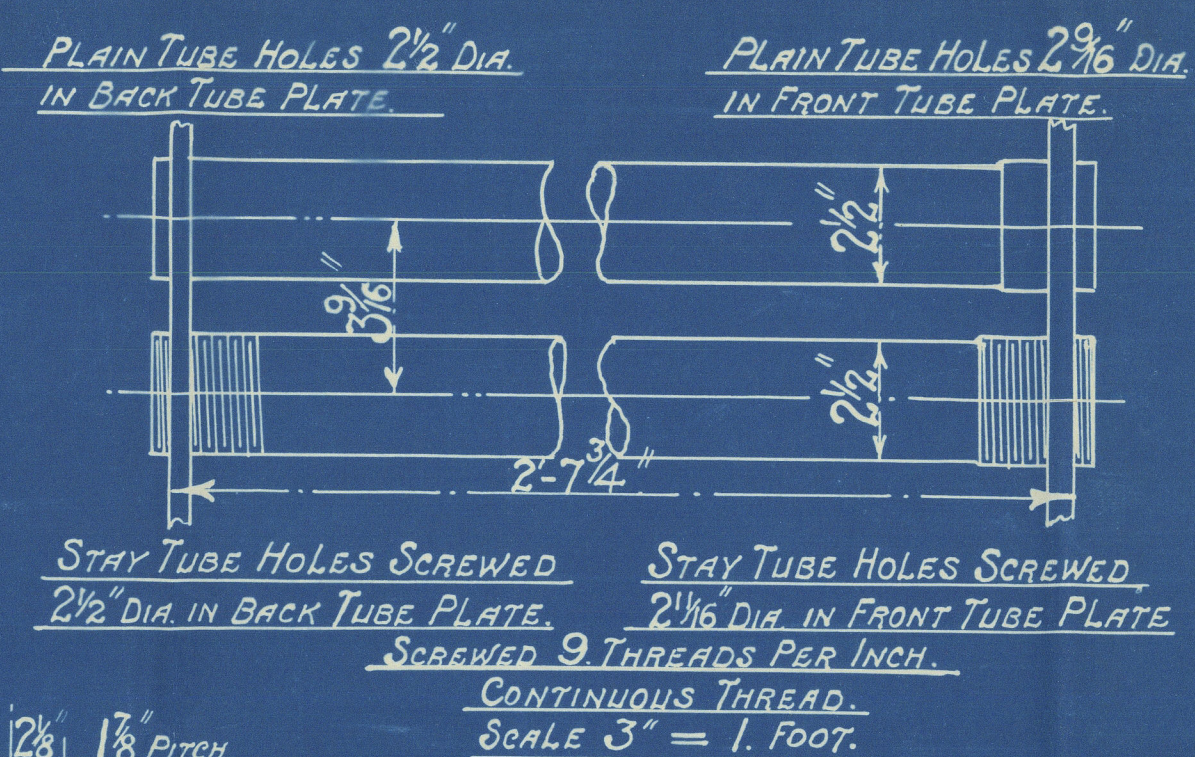 PLAIN TUBE HOLES 2½" DIA.
IN BACK TUBE PLATE.
PLAIN TUBE HOLES 2 9/16" DIA.
IN FRONT TUBE PLATE.
2½"
3 9/16"
2½"
2'-7 3/4"
STAY TUBE HOLES SCREWED
2½" DIA. IN BACK TUBE PLATE.
STAY TUBE HOLES SCREWED
2 11/16" DIA. IN FRONT TUBE PLATE
SCREWED 9. THREADS PER INCH.
CONTINUOUS THREAD.
SCALE 3" = 1. FOOT.
2⅛" 1⅞" PITCH